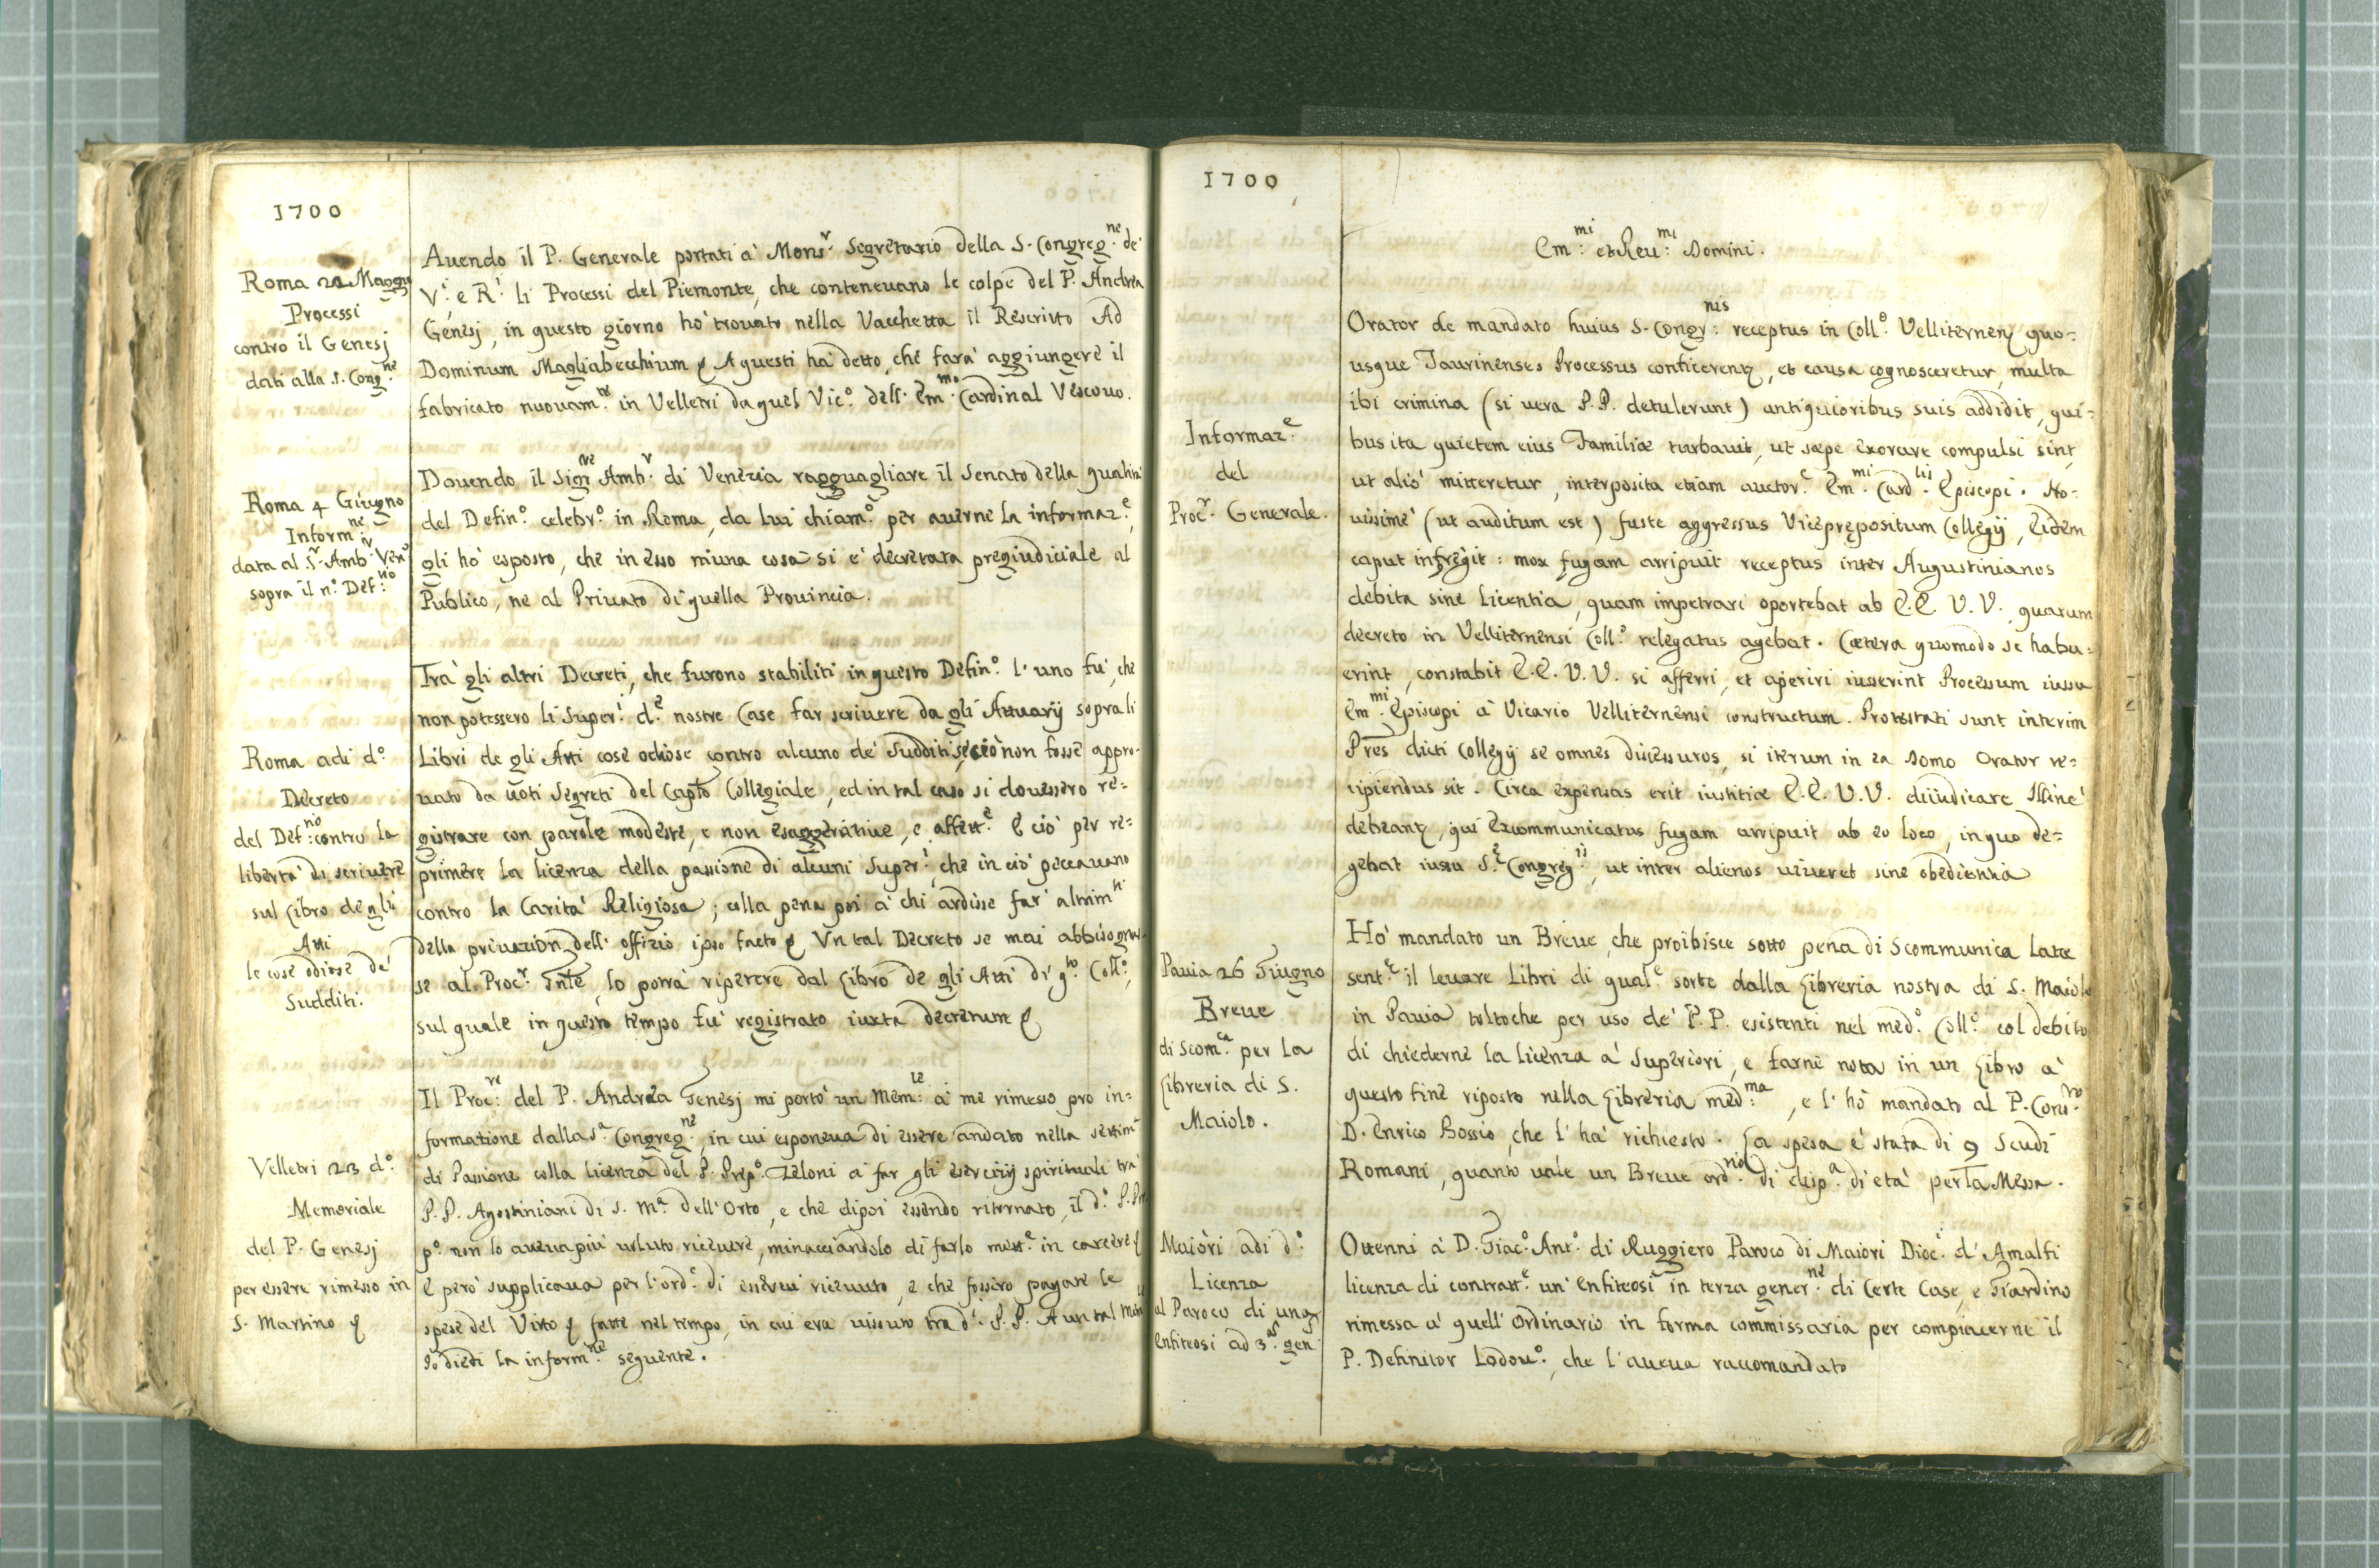 1700
Roma 22 Maggio
Processi
contro il Genesj
dati alla S. Cong.ne
Auendo il P. Generale portati à Mons.r Segretario della S. Congreg.ne de'
V.i e R.i li Processi del Piemonte, che conteneuano le colpe del P. Andrea
Genesj, in questo giorno hò trouato nella Vacchetta il Rescritto Ad
Dominum Magliabecchium & A questi hà detto, che farà aggiungere il
fabricato nuouam.te in Velletri da quel Vic.o dell' Em.mo Cardinal Vescouo.
Roma 4 Giugno
Inform.ne
data al S.r Amb.r Ven.o
sopra il n.o Def.no
Douendo il Sig.re Amb.r di Venezia ragguagliare il Senato della qualità
del Defin.o celebr.o in Roma, da lui chiam.o per auerne la informaz.e,
gli hò esposto, che in esso niuna cosa si è decretata pregiudiciale al
Publico, ne al Priuato di quella Prouincia.
Roma adi d.o
Decreto
del Def.no contro la
libertà di scriuere
sul Libro de gli
Atti
le cose odiose de'
Sudditi.
Trà gli altri Decreti, che furono stabiliti in questo Defin.o l'uno fù, che
non potessero li Super.i d.e nostre Case far scriuere da gli Attuarij sopra li
Libri de gli Atti cose odiose contro alcuno de' Sudditi, se ciò non fosse appro-
uato da uoti Segreti del Capto Collegiale, ed in tal caso si douessero re=
gistrare con parole modeste, e non esaggeratiue, e affett.e E ciò per re=
primere la licenza della passione di alcuni Super.i che in ciò peccauano
contro la Carità Religiosa; colla pena poi à chi ardisse far altrim.ti
della priuazion dell' offizio ipso facto & Vn tal Decreto se mai abbisognas-
se al Proc.r Gnle, lo potrà ripetere dal Libro de gli Atti di q.to Coll.o,
sul quale in questo tempo fù registrato iuxta decretum &
Velletri 23 d.o
Memoriale
del P. Genesj
per essere rimesso in
S. Martino &
Il Proc.re del P. Andrea Genesj mi portò un Mem.le à me rimesso pro in=
formatione dalla S.a Congreg.ne, in cui esponeua di essere andato nella settim.a
di Passione colla licenza del P. Prep.o Zeloni à far gli esercizij spirituali trà
P.P. Agostiniani di S. M.a dell'Orto, e che dipoi essendo ritornato, il d.o P. Pre
p.o non lo aueua più uoluto riceuere, minacciandolo di farlo mett.e in carcere &
E però supplicaua per l'ord.e di esserui riceuuto, e che fossero pagate le
spese del Vitto & fatte nel tempo, in cui era uissuto tra d.i P.P. A un tal
Io diedi la inform.ne seguente.
1700
Em.mi et Reu.mi Domini.
Informaz.e
del
Proc.r Generale.
Orator de mandato huius S. Congr.nis receptus in Coll.o Velliternen quo=
usque Taurinenses Processus conficerent, et causa cognosceretur, multa
ibi crimina (si uera P.P. detulerunt) antiquioribus suis addidit, qui=
bus ita quietem eius Familiæ turbauit, ut sæpe exorare compulsi sint,
ut aliò mitteretur, interposita etiam auctor.e Em.mi Card.lis Episcopi. No=
uissimè (ut auditum est) fuste aggressus Viceprępositum Collegij, Eidem
caput infregit: mox fugam arripuit receptus inter Augustinianos
debita sine Licentia, quam impetrari oportebat ab E.E. V.V. quarum
decreto in Velliternensi Coll.o relegatus agebat. Cætera quomodo se habu=
erint, constabit E.E. V.V. si afferri, et aperiri iusserint Processum iussu
Em.mi Episcopi à Vicario Velliternensi constructum. Protestati sunt interim
Pres dicti Collegij se omnes discessuros, si iterum in ea Domo Orator re=
cipiendus sit. Circa expensas erit iustitiæ E.E. V.V. diiudicare Illine
debeant, qui Excommunicatus fugam arripuit ab eo loco, in quo de=
gebat iussu S.e Congreg.is, ut inter alienos uiueret sine obedientia
Pauia 26 Giugno
Breue
di Scom.ca per la
Libreria di S.
Maiolo.
Hò mandato un Breue, che proibisce sotto pena di Scommunica Latæ
sent.æ il leuare Libri di qual.e sorte dalla Libreria nostra di S. Maiolo
in Pauia toltoche per uso de' P.P. esistenti nel med.o Coll.o col debito
di chiederne la licenza à Superiori, e farne nota in un Libro à
questo fine riposto nella Libreria med.ma, e l'hò mandato al P. Cons.ro
D. Enrico Bossio, che l'hà richiesto. La spesa è stata di 9 Scudi
Romani, quanto uale un Breue ord.rio di disp.a di età per la Messa.
Maiori adi d.o
Licenza
al Paroco di una
Enfiteosi ad 3.as gen.s
Ottenni à D. Giac.o Ant.o di Ruggiero Paroco di Maiori Dioc.i d'Amalfi
licenza di contratt.e un'Enfiteosi in terza gener.ne di Certe Case, e Giardino
rimessa à quell'Ordinario in forma commissaria per compiacerne il
P. Definitor Lodou.o, che l'aueua raccomandato